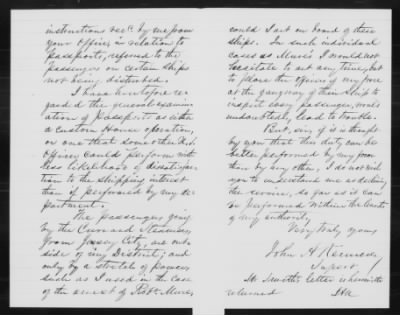 instructions recd. by me from
your Office in relation to
passports, referred to the
passengers on certain Ships
not being districted.
I have heretofore re-
garded the general examin-
ation of passports as
a Custom House operation,
or one that some other
Officer could perform with
less likelihood of dissatisfac-
tion to the shipping interest
than if performed by my De-
partment.
The passengers going
by the Cunard Steamers
from Jersey City, are out-
side of my District; and
only by a stretch of power
such as I used in the case
of the arrest of Robt.
could I act on board of these
Ships. In such individual
cases as I would not
hesitate to act any time, but
to place the officers of my force
at the gangway of their Ship to
inspect every passenger, would
undoubtedly, lead to trouble.
But, Sir, if it is thought
by you that this duty can be
better performed by my force
than by any other, I do not wish
you to understand me as declining
the service, so far as it can
be performed within the limits
of my authority.
Very truly yours
John A Kennedy
Supert
letter is herewith
returned JAK